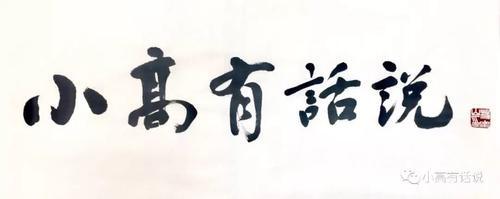 小髙有話説
小高有话说